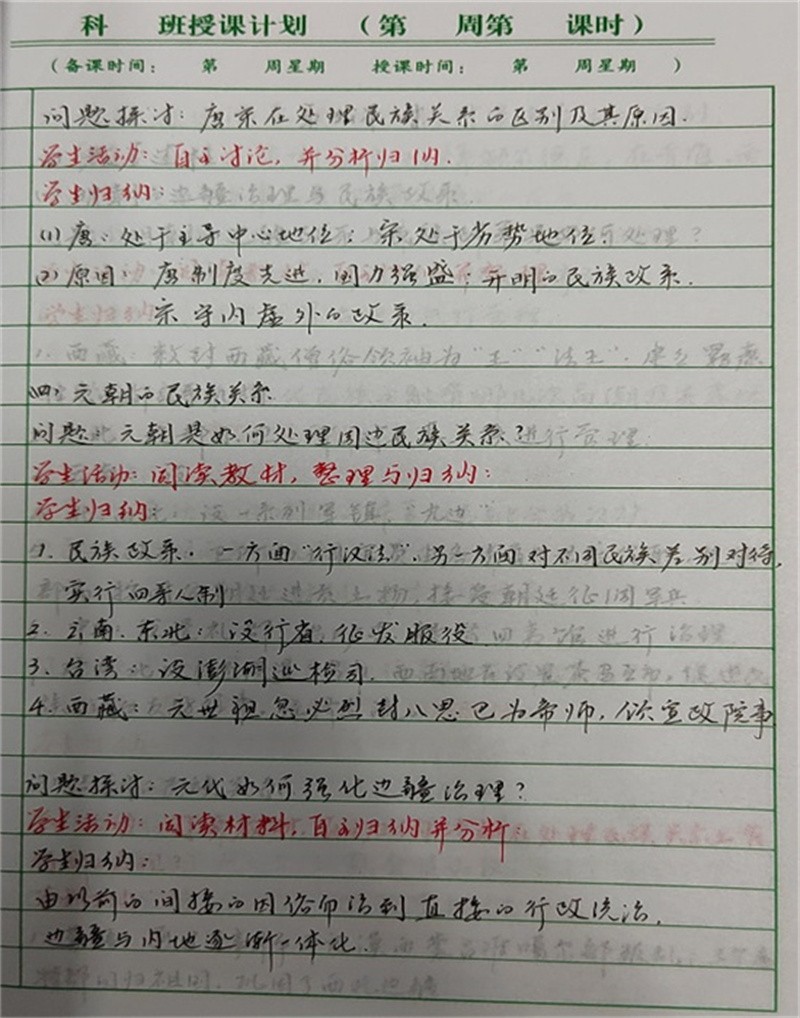 科 班授课计划 (第 周第 课时)
(备课时间: 第 周星期 授课时间: 第 周星期 )
问题探讨: 唐宋在处理民族关系的区别及其原因.
学生活动: 自主讨论, 并分析归纳.
学生归纳:
(1) 唐: 处于主导中心地位; 宋处于劣势地位.
(2) 原因: 唐制度先进, 国力强盛; 开明的民族政策.
宋 守内虚外的政策.
四、元朝的民族关系
问题: 元朝是如何处理周边民族关系?
学生活动: 阅读教材, 整理与归纳:
学生归纳:
1. 民族政策. 一方面"行汉法", 另一方面对不同民族差别对待,
实行四等人制
2. 云南. 东北: 设行省, 征发服役
3. 台湾: 设澎湖巡检司.
4. 西藏: 元世祖忽必烈封八思巴为帝师, 领宣政院事
问题探讨: 元代如何强化边疆治理?
学生活动: 阅读材料, 自主归纳并分析
学生归纳:
由以前的间接的因俗而治到直接的行政统治,
边疆与内地逐渐一体化.